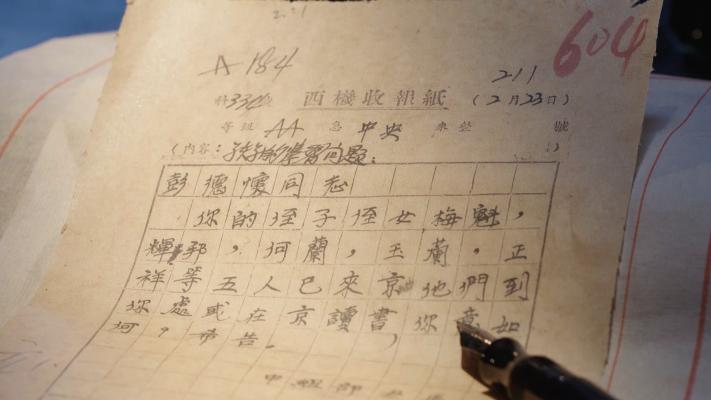 604
A 184
211
西機收報紙 (2月23日)
等級 AA 急 中央 號
(內容：學習问题。)
彭德懷同志
你的侄子侄女梅魁，
輝邦，河蘭，玉蘭，正
祥等五人已來京他們到
你處或在京讀書，你意如
何，告。
中組部